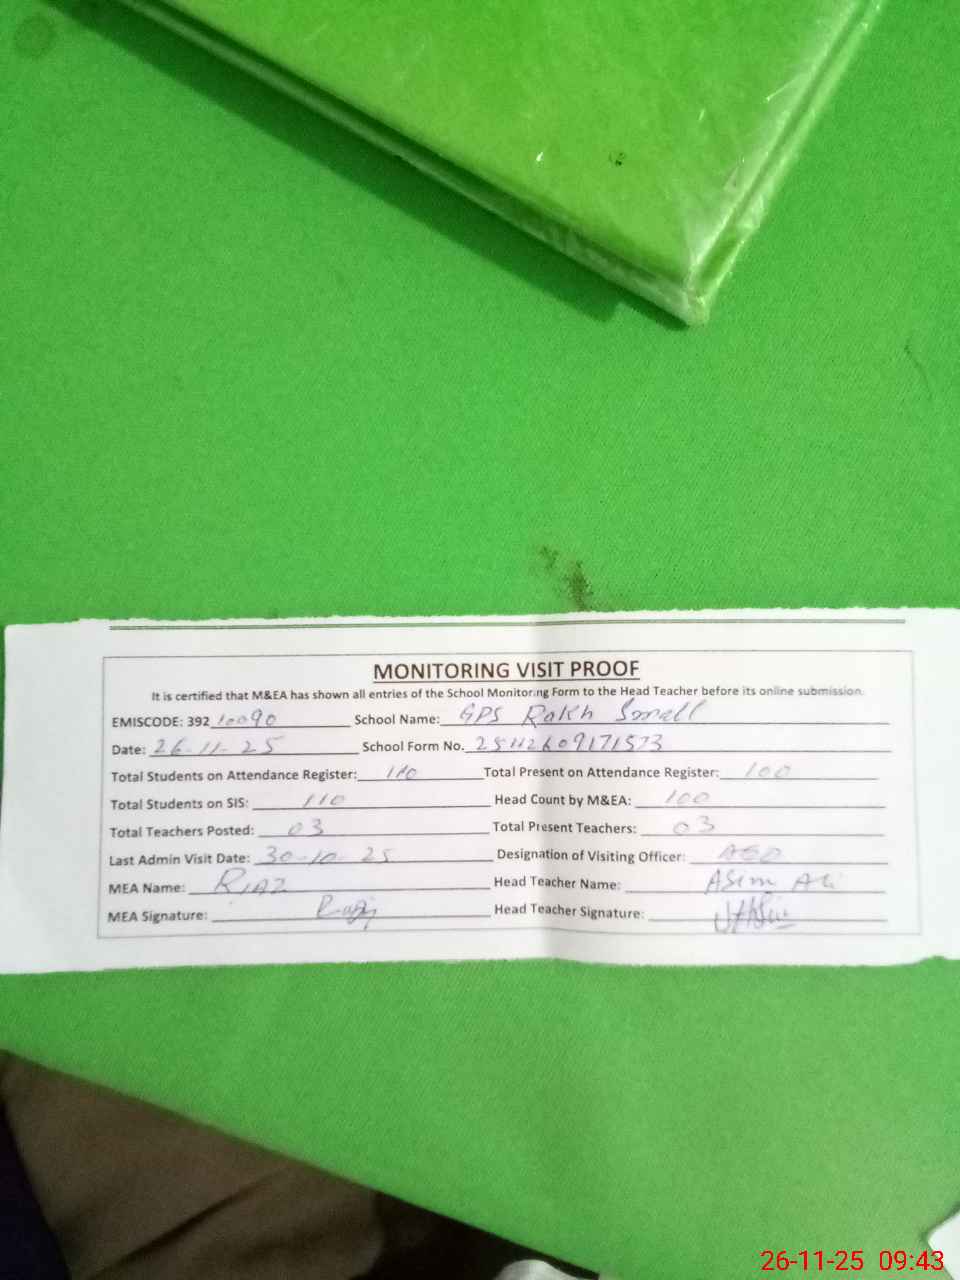 MONITORING VISIT PROOF
It is certified that M&EA has shown all entries of the School Monitoring Form to the Head Teacher before its online submission.
EMISCODE: 392 10090 School Name: GPS Rakh Small
Date: 26-11-25 School Form No. 25112609171573
Total Students on Attendance Register: 110 Total Present on Attendance Register: 100
Total Students on SIS: 110 Head Count by M&EA: 100
Total Teachers Posted: 03 Total Present Teachers: 03
Last Admin Visit Date: 30-10-25 Designation of Visiting Officer: AEO
MEA Name: RIAZ Head Teacher Name: Asim Ali
MEA Signature: Head Teacher Signature:
26-11-25 09:43